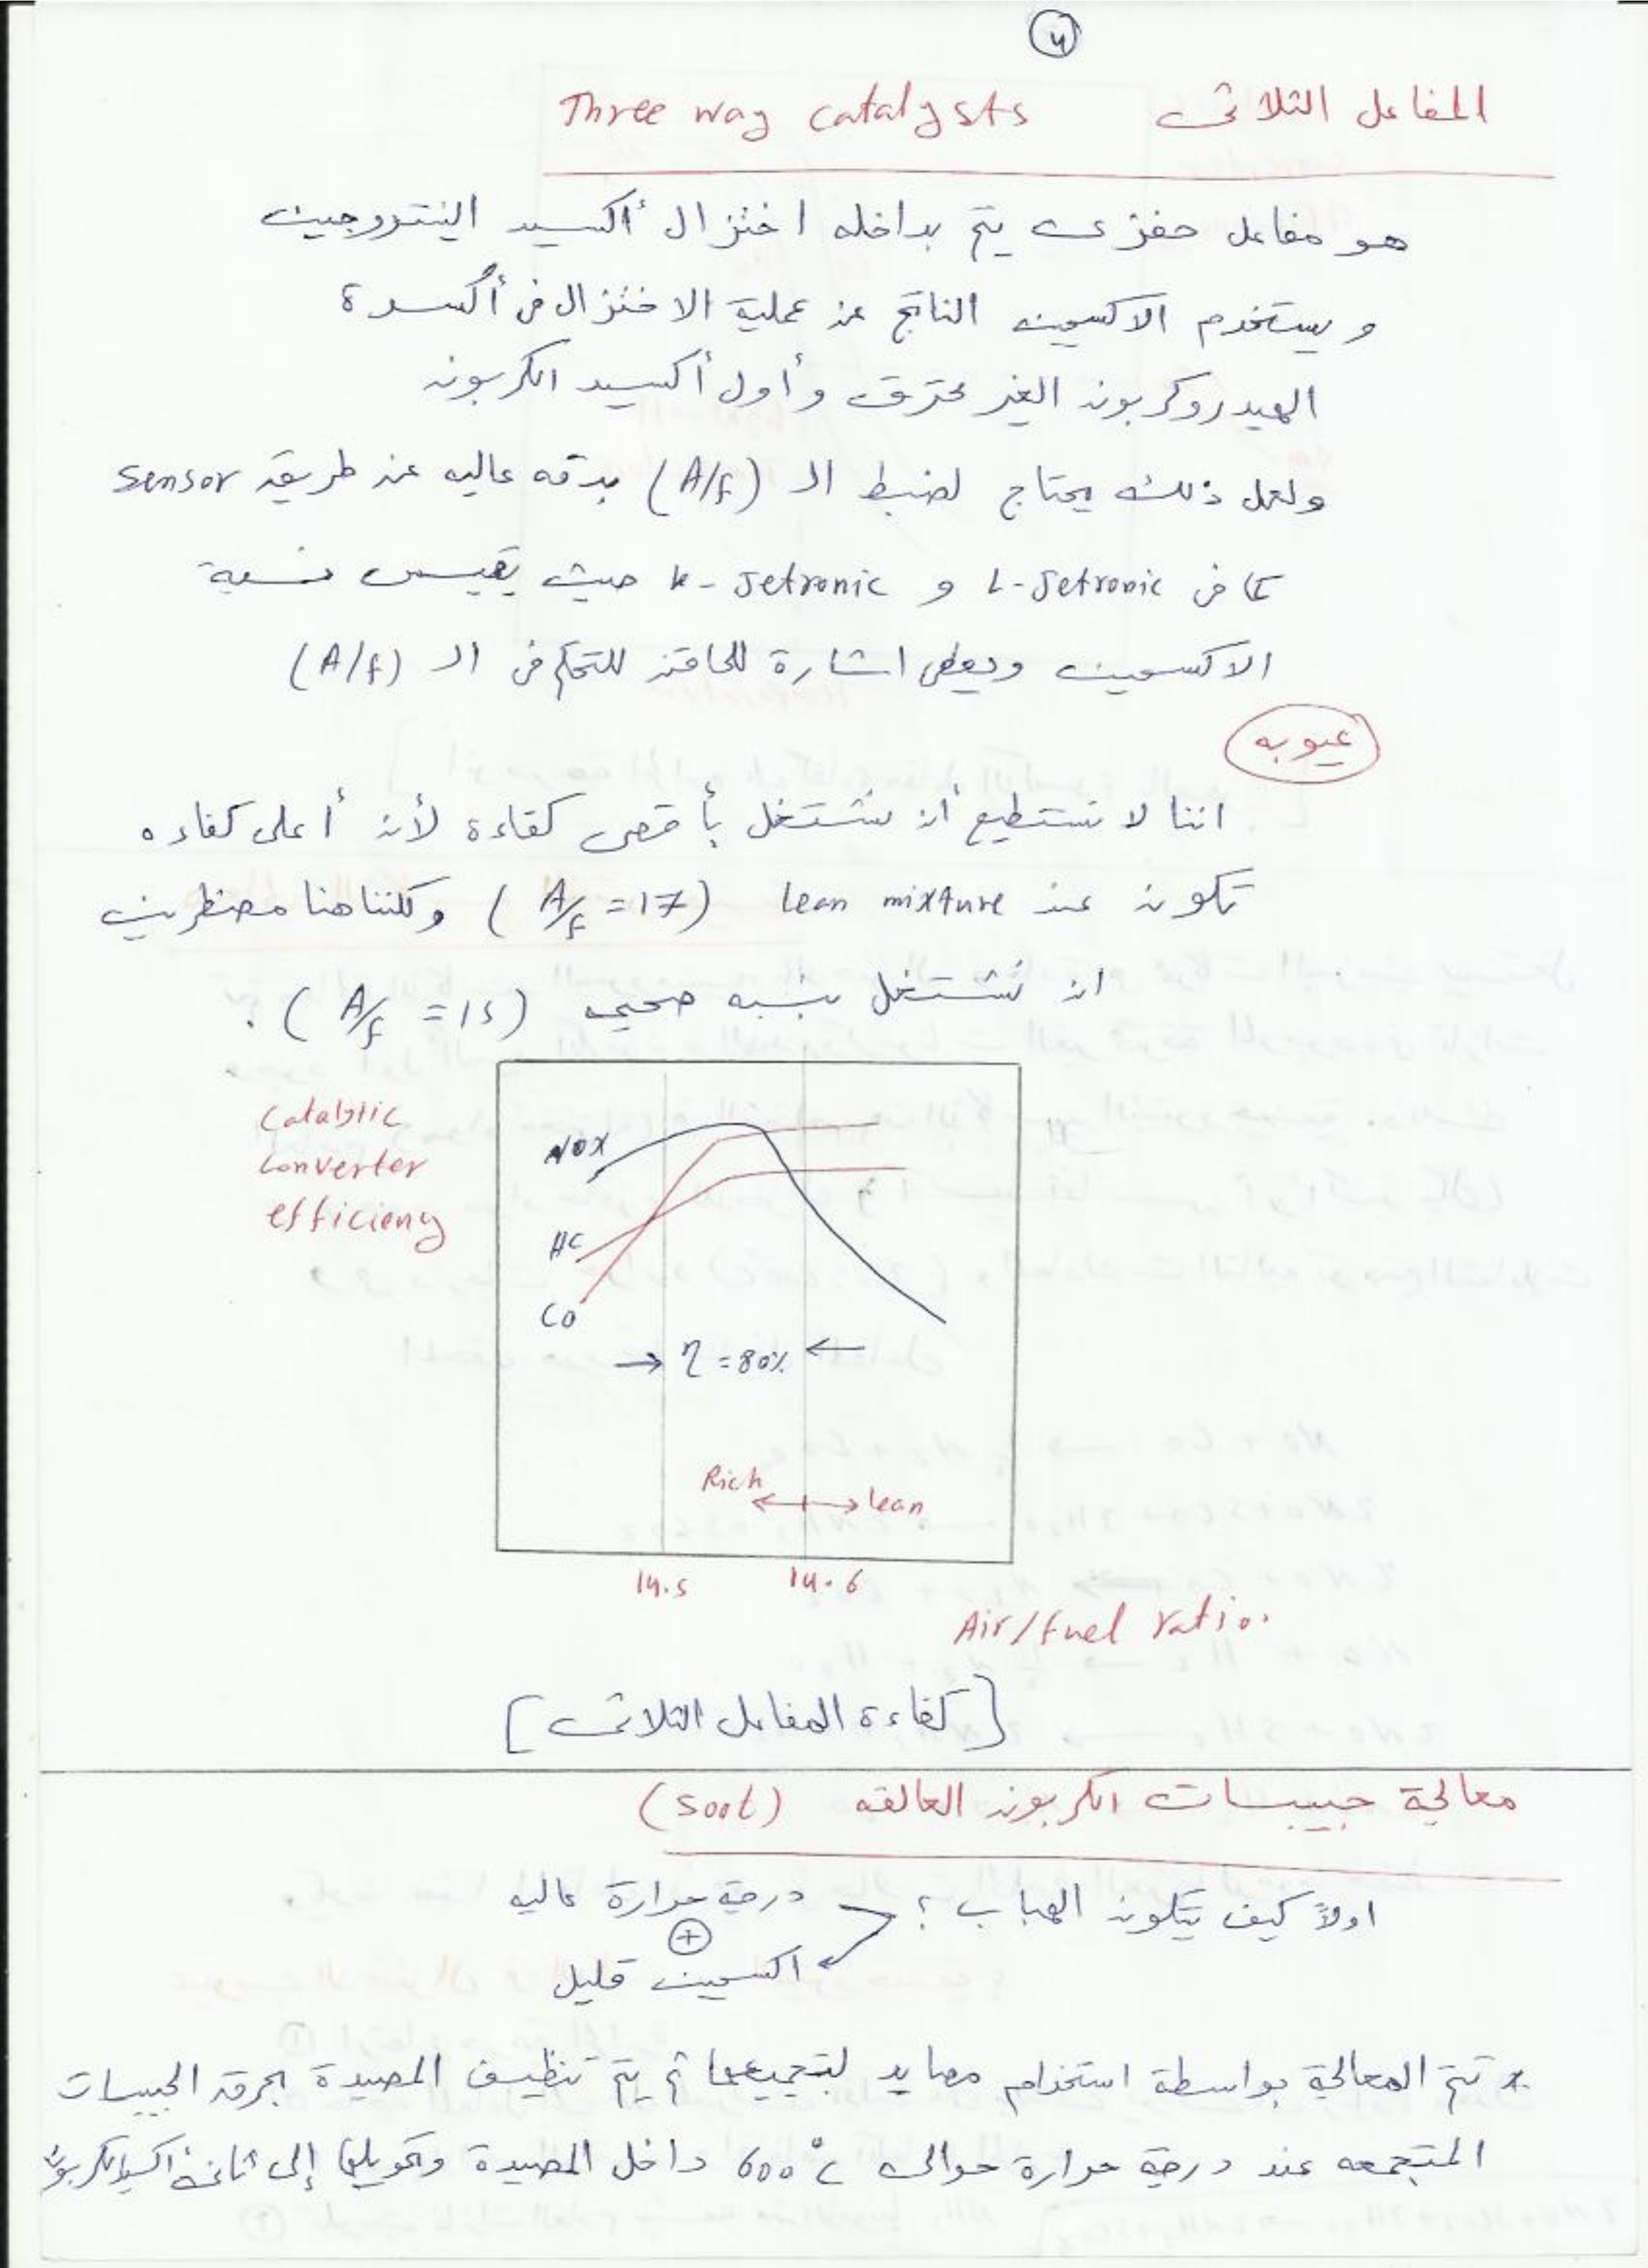 4
المفاعل الثلاثى Three way catalysts
هو مفاعل حفزى يتم بداخله اختزال أكسيد النتروجين
و يستخدم الاكسجين الناتج عن عملية الاختزال فى أكسدة
الهيدروكربون الغير محترق و أول أكسيد الكربون
ولعمل ذلك يحتاج لضبط الـ (A/f) بدقه عاليه عن طريق sensor
كما فى L-Jetronic و k-Jetronic حيث يقيس نسبة
الاكسجين ويعطى اشارة للحاقن للتحكم فى الـ (A/f)
عيوبه
اننا لا نستطيع أن نشتغل بأقصى كفاءة لأن أعلى كفاءه
تكون عند lean mixture (A/f = 17) ولكننا هنا مضطرين
ان نشتغل بنسبه صحيحه (A/f = 15) .
Catalytic
Converter
efficieny
NOX
HC
CO
→ η = 80% ←
Rich ←→ lean
14.5 14.6
Air/fuel ratio.
[كفاءة المفاعل الثلاثى]
معالجة حبيبات الكربون العالقه (soot)
اولاً كيف يتكون الهباب ؟ درجة حرارة عاليه
+
اكسجين قليل
* تتم المعالجة بواسطة استخدام مصايد لتجميعها ثم يتم تنظيف المصيدة بحرق الحبيبات
المتجمعه عند درجة حرارة حوالى 600 °c داخل المصيدة وتحويلها إلى ثانى اكسيد الكربون